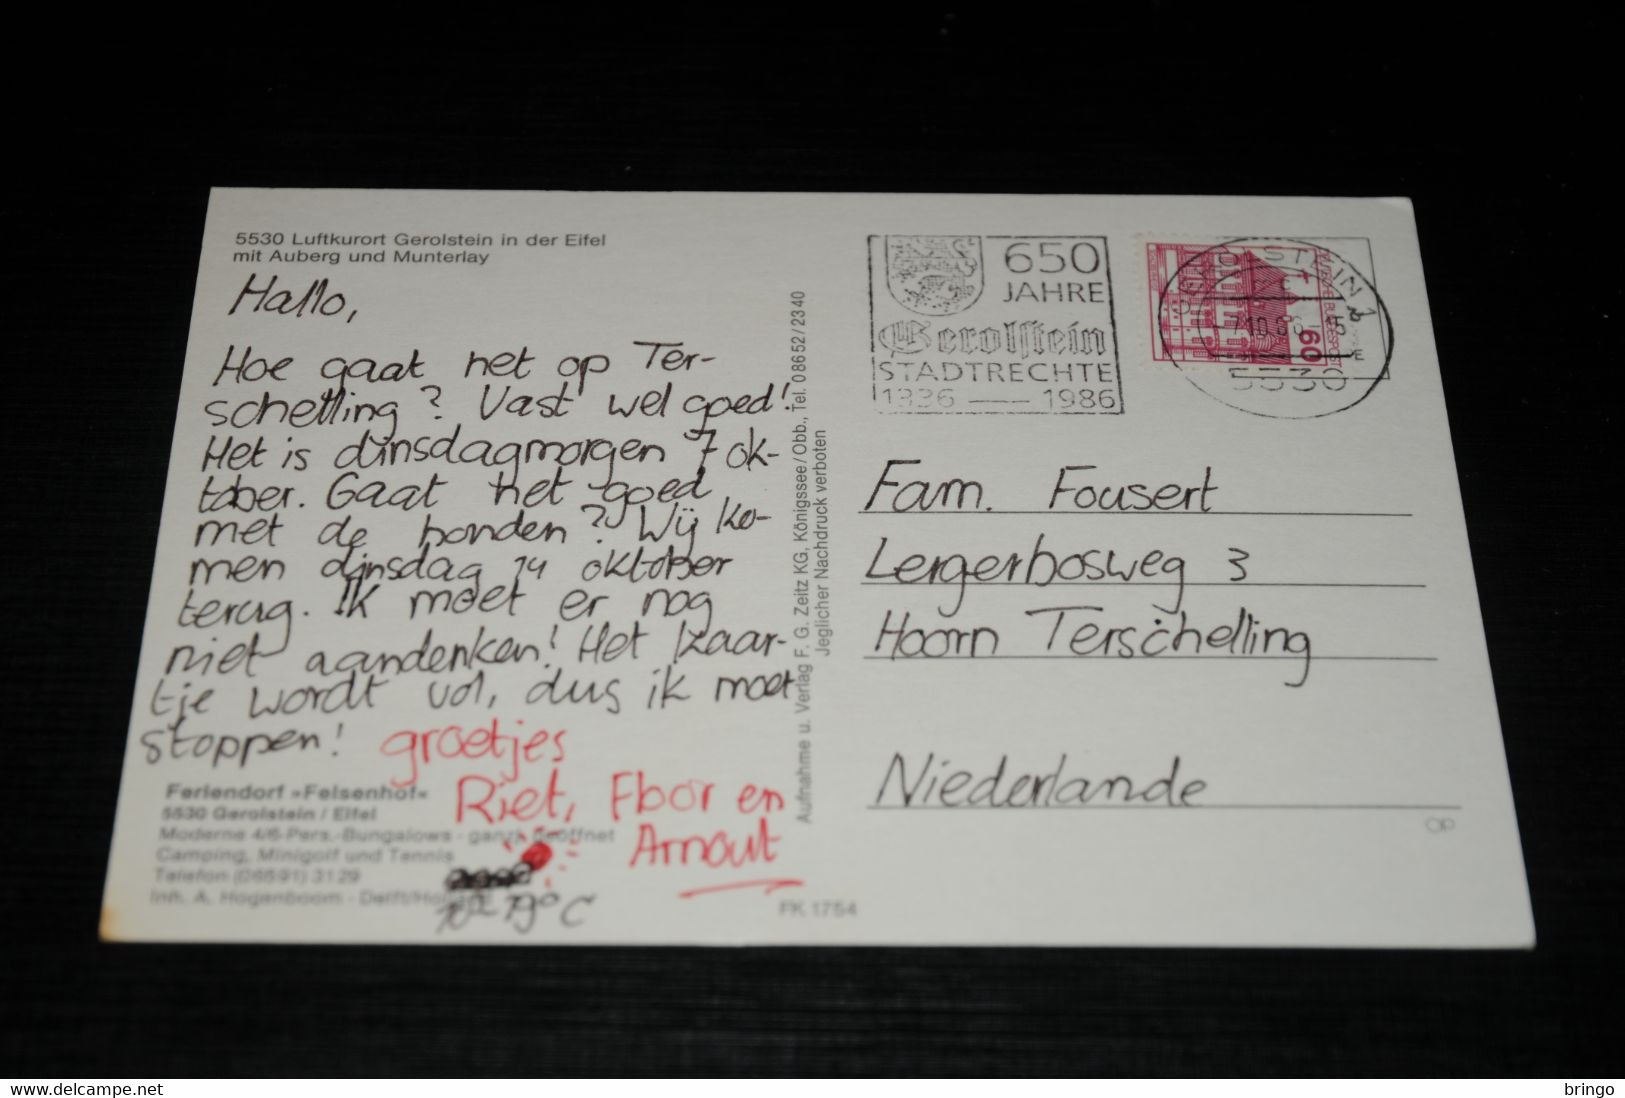 5530 Luftkurort Gerolstein in der Eifel
mit Auberg und Munterlay
Hallo,
Hoe gaat het op Ter-
schelling? Vast wel goed!
Het is dinsdagmorgen 7 ok-
tober. Gaat het goed
met de honden? Wij ko-
men dinsdag 14 oktober
terug. Ik moet er nog
niet aandenken! Het kaar-
tje wordt vol, dus ik moet
stoppen! groetjes
Riet, Fbor en
Arnout
Feriendorf »Felsenhof«
5530 Gerolstein / Eifel
Moderne 4/6-Pers.-Bungalows - ganzj. geöffnet
Camping, Minigolf und Tennis
Telefon (06591) 3129
Inh. A. Hogenboom - Delft/Holland
18 - 19° C
FK 1754
Aufnahme u. Verlag F. G. Zeitz KG, Königssee/Obb., Tel. 08652/2340
Jeglicher Nachdruck verboten
650
JAHRE
Gerolstein
STADTRECHTE
1336 — 1986
GEROLSTEIN 1
-7.10.86-15
5530
DEUTSCHE BUNDESPOST
60
Fam. Fousert
Lergerbosweg 3
Hoorn Terschelling
Niederlande
OP
delcampe.net
bringo